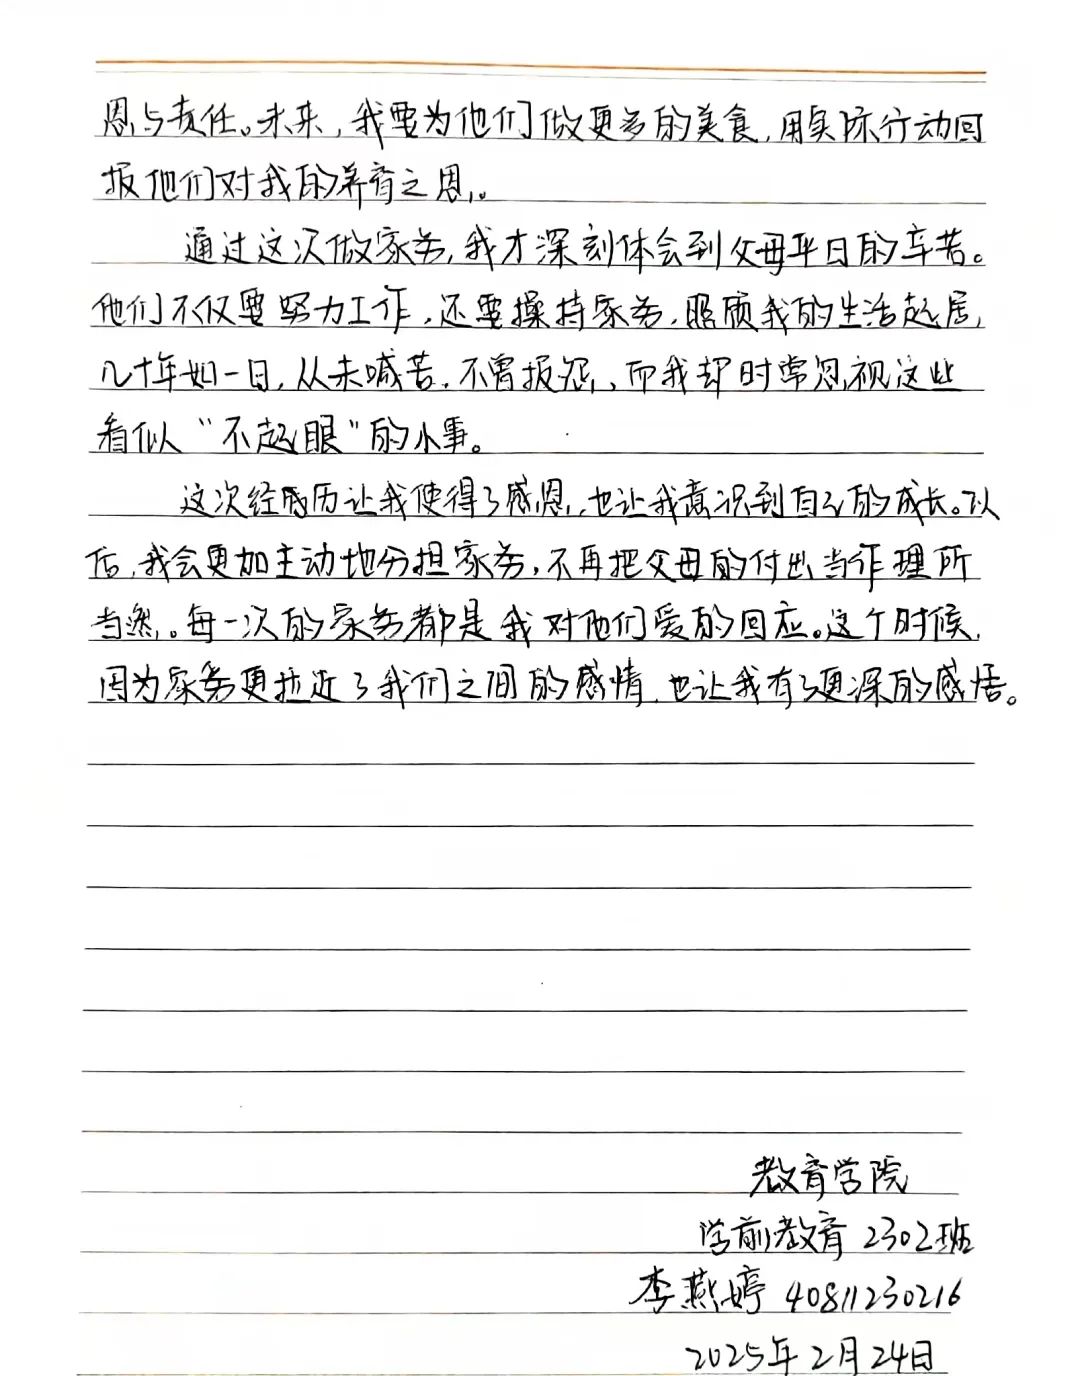 恩与责任。未来，我要为他们做更多的美食，用实际行动回
报他们对我的养育之恩。
通过这次做家务，我才深刻体会到父母平日的辛苦。
他们不仅要努力工作，还要操持家务，照顾我的生活起居，
几十年如一日，从未喊苦，不曾报怨，而我却时常忽视这些
看似“不起眼”的小事。
这次经历让我使得了感恩，也让我意识到自己的成长。以
后，我会更加主动地分担家务，不再把父母的付出当作理所
当然。每一次的家务都是我对他们爱的回应。这个时候，
因为家务更拉近了我们之间的感情，也让我有了更深的感悟。
教育学院
学前教育2302班
李燕婷 40811230216
2025年2月24日